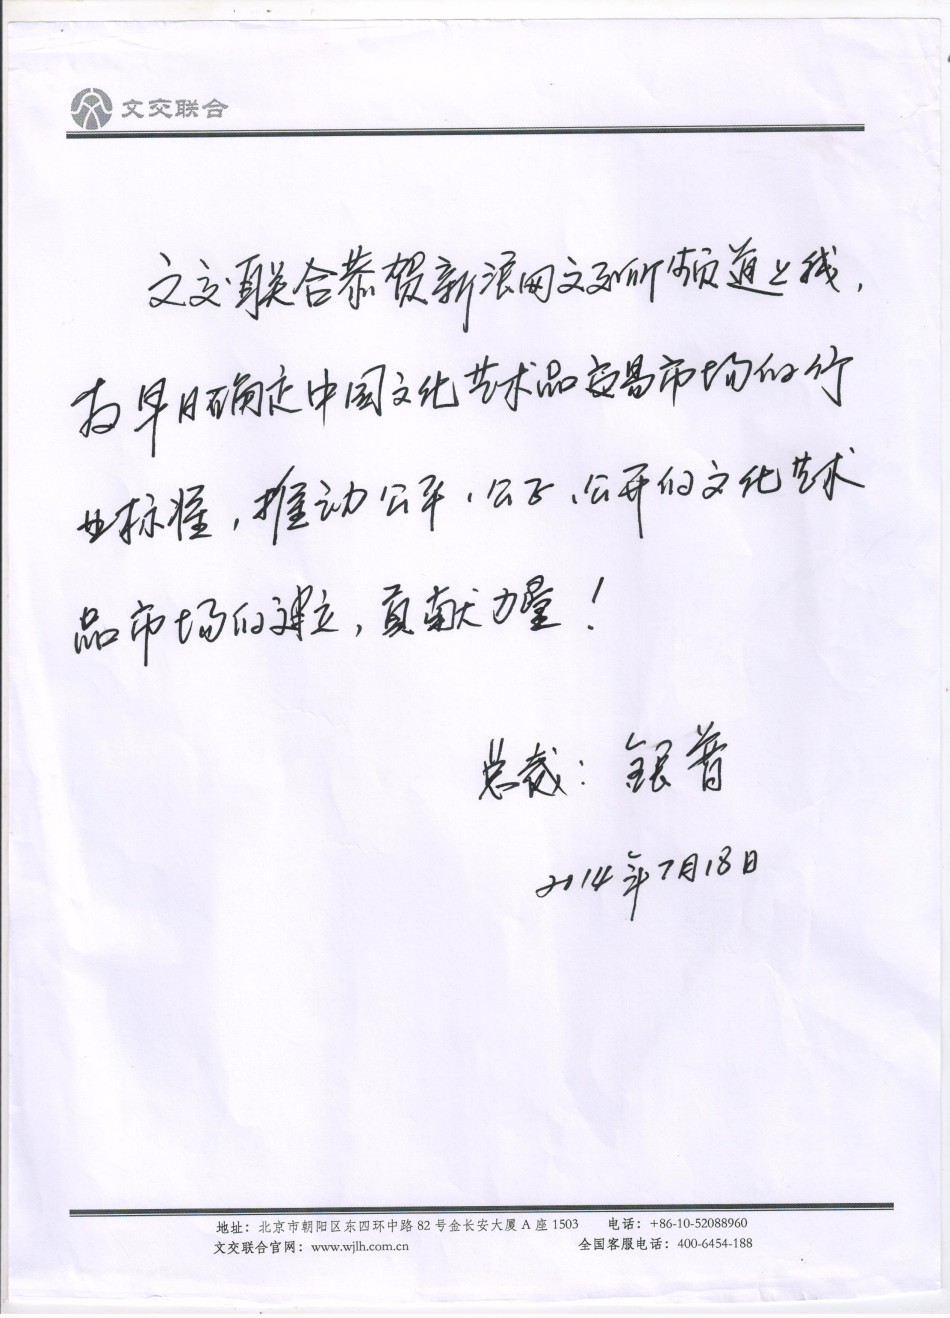 文交联合
文交联合恭贺新浪网文交所频道上线，
为早日确定中国文化艺术品交易市场的行
业标准，推动公平、公正、公开的文化艺术
品市场的建立，贡献力量！
总裁：银普
2014年7月18日
地址：北京市朝阳区东四环中路82号金长安大厦A座1503 电话：+86-10-52088960
文交联合官网：www.wjlh.com.cn 全国客服电话：400-6454-188